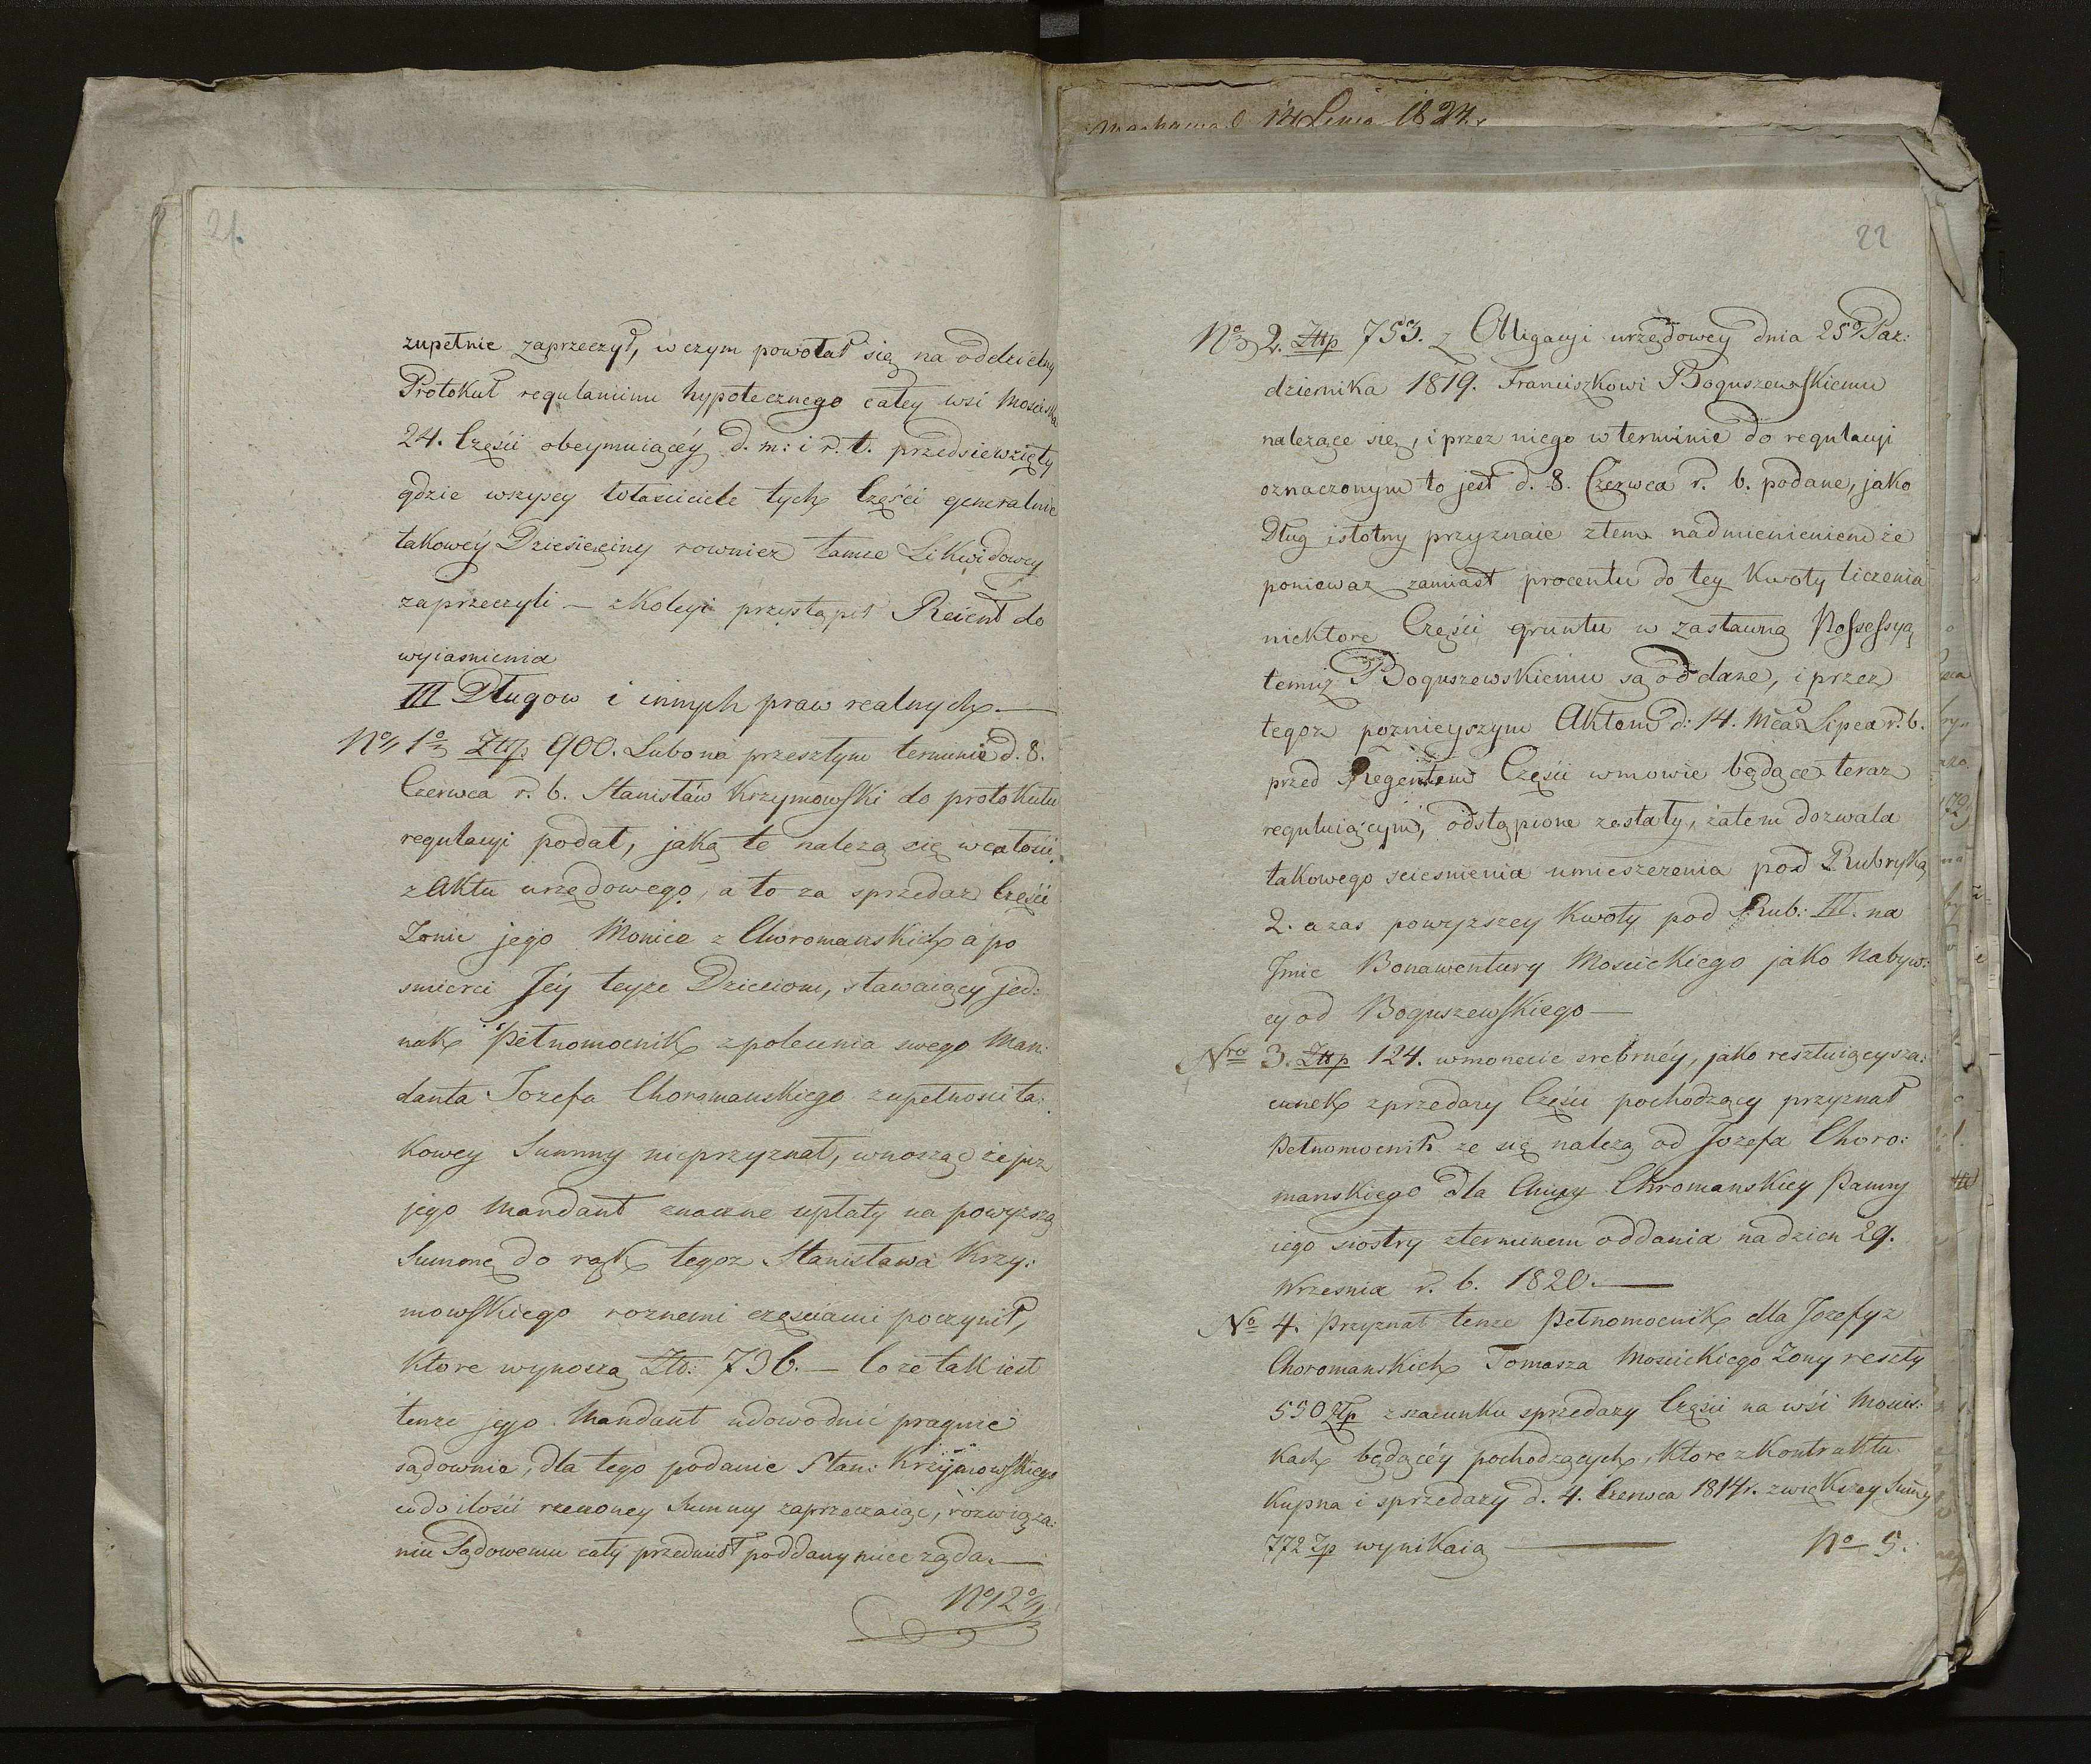 14 Lipca 1824.
21.
zupełnie zaprzeczył, w czym powołał się na oddzielny
Protokuł regulaminu hypotecznego całey wsi Mosciska
24. Części obeymuiącéy d. m: i r. t. przedsiewzięty
gdzie wszyscy właściciele tych Części generalnie
takowéy Dziesięciny rownież tamże Likwidowey
zaprzeczyli — z kolegi przystąpił Reient do
wyiasnienia
III Długow i innych praw realnych. —
No 1o Złłp. 900. Lubo na przeszłym terminie d. 8.
Czerwca r. b. Stanisław Krzymowski do protokułu
regulacyi podał, jaką te należą się w całości
z Aktu urzędowego, a to za sprzedaż Części
Zonie jego Monice z Choromanskich a po
smierci Jéy teyże Dzieciom, stawaiący jed:
nak Pełnomocnik z polecenia swego Man:
danta Jozefa Choromanskiego zupełnosci ta:
kowey Summy nieprzyznał, wnosząc że już
jego Mandant znaczne upłaty na powyższą
Summę do rąk tegoż Stanisława Krzy:
mowskiego roznemi częściami poczynił,
Które wynoszą Złt: 736. — Co że tak iest
tenże jego Mandant udowodnić pragnie
sądownie, dla tego podanie Stan: Krzymowskiego
co do ilości rzeczoney Summy zaprzeczaiąc, rozwiąza:
niu Sądowemu cały przedmiot poddany miec żąda. —
No 2o
22
No 2. Złłp 753. z Obligacyi urzędowey dnia 25o Paz:
dziernika 1819. Franciszkowi Boguszewskiemu
należące się, i przez niego w terminie do regulacyi
oznaczonym to jest d. 8. Czerwca r. b. podane, jako
Dług istotny przyznaie z tem nadmienieniem że
ponieważ zamiast procentu do tey Kwoty liczenia
niektore Części gruntu w zastawną Possessyą
temuż Boguszewskiemu są oddane, i przez
tegoż poznieyszym Aktem d: 14. Mca Lipca r. b.
przed Regentem Części w mowie będące teraz
reguluiącym, odstąpione zostały, zatem dozwala
takowego sciesnienia umieszczenia pod Rubryką
2. a zas powyższey Kwoty pod Rub: III. na
Jmie Bonawentury Moscickiego jako Nabyw:
cy od Boguszewskiego —
Nro 3. Złłp 124. w monecie srebrnéy, jako resztuiący sza:
cunek z przedazy Części pochodzący przyznał
Pełnomocnik że się należą od Jozefa Choro:
manskiego dla Anny Chromanskiey Panny
iego siostry z terminem oddania na dzien 29.
Wrzesnia r. b. 1820. —
No 4. Przyznał tenże Pełnomocnik dla Jozefy z
Choromanskich Tomasza Moscickiego Zony reszty
550 Złp z szacunku sprzedazy Części na wsi Mościs:
kach będącéy pochodzących, ktore z Kontraktu
Kupna i sprzedazy d. 4. Czerwca 1814 r. z większey Sumy
772 Zp wynikaią — No 5.